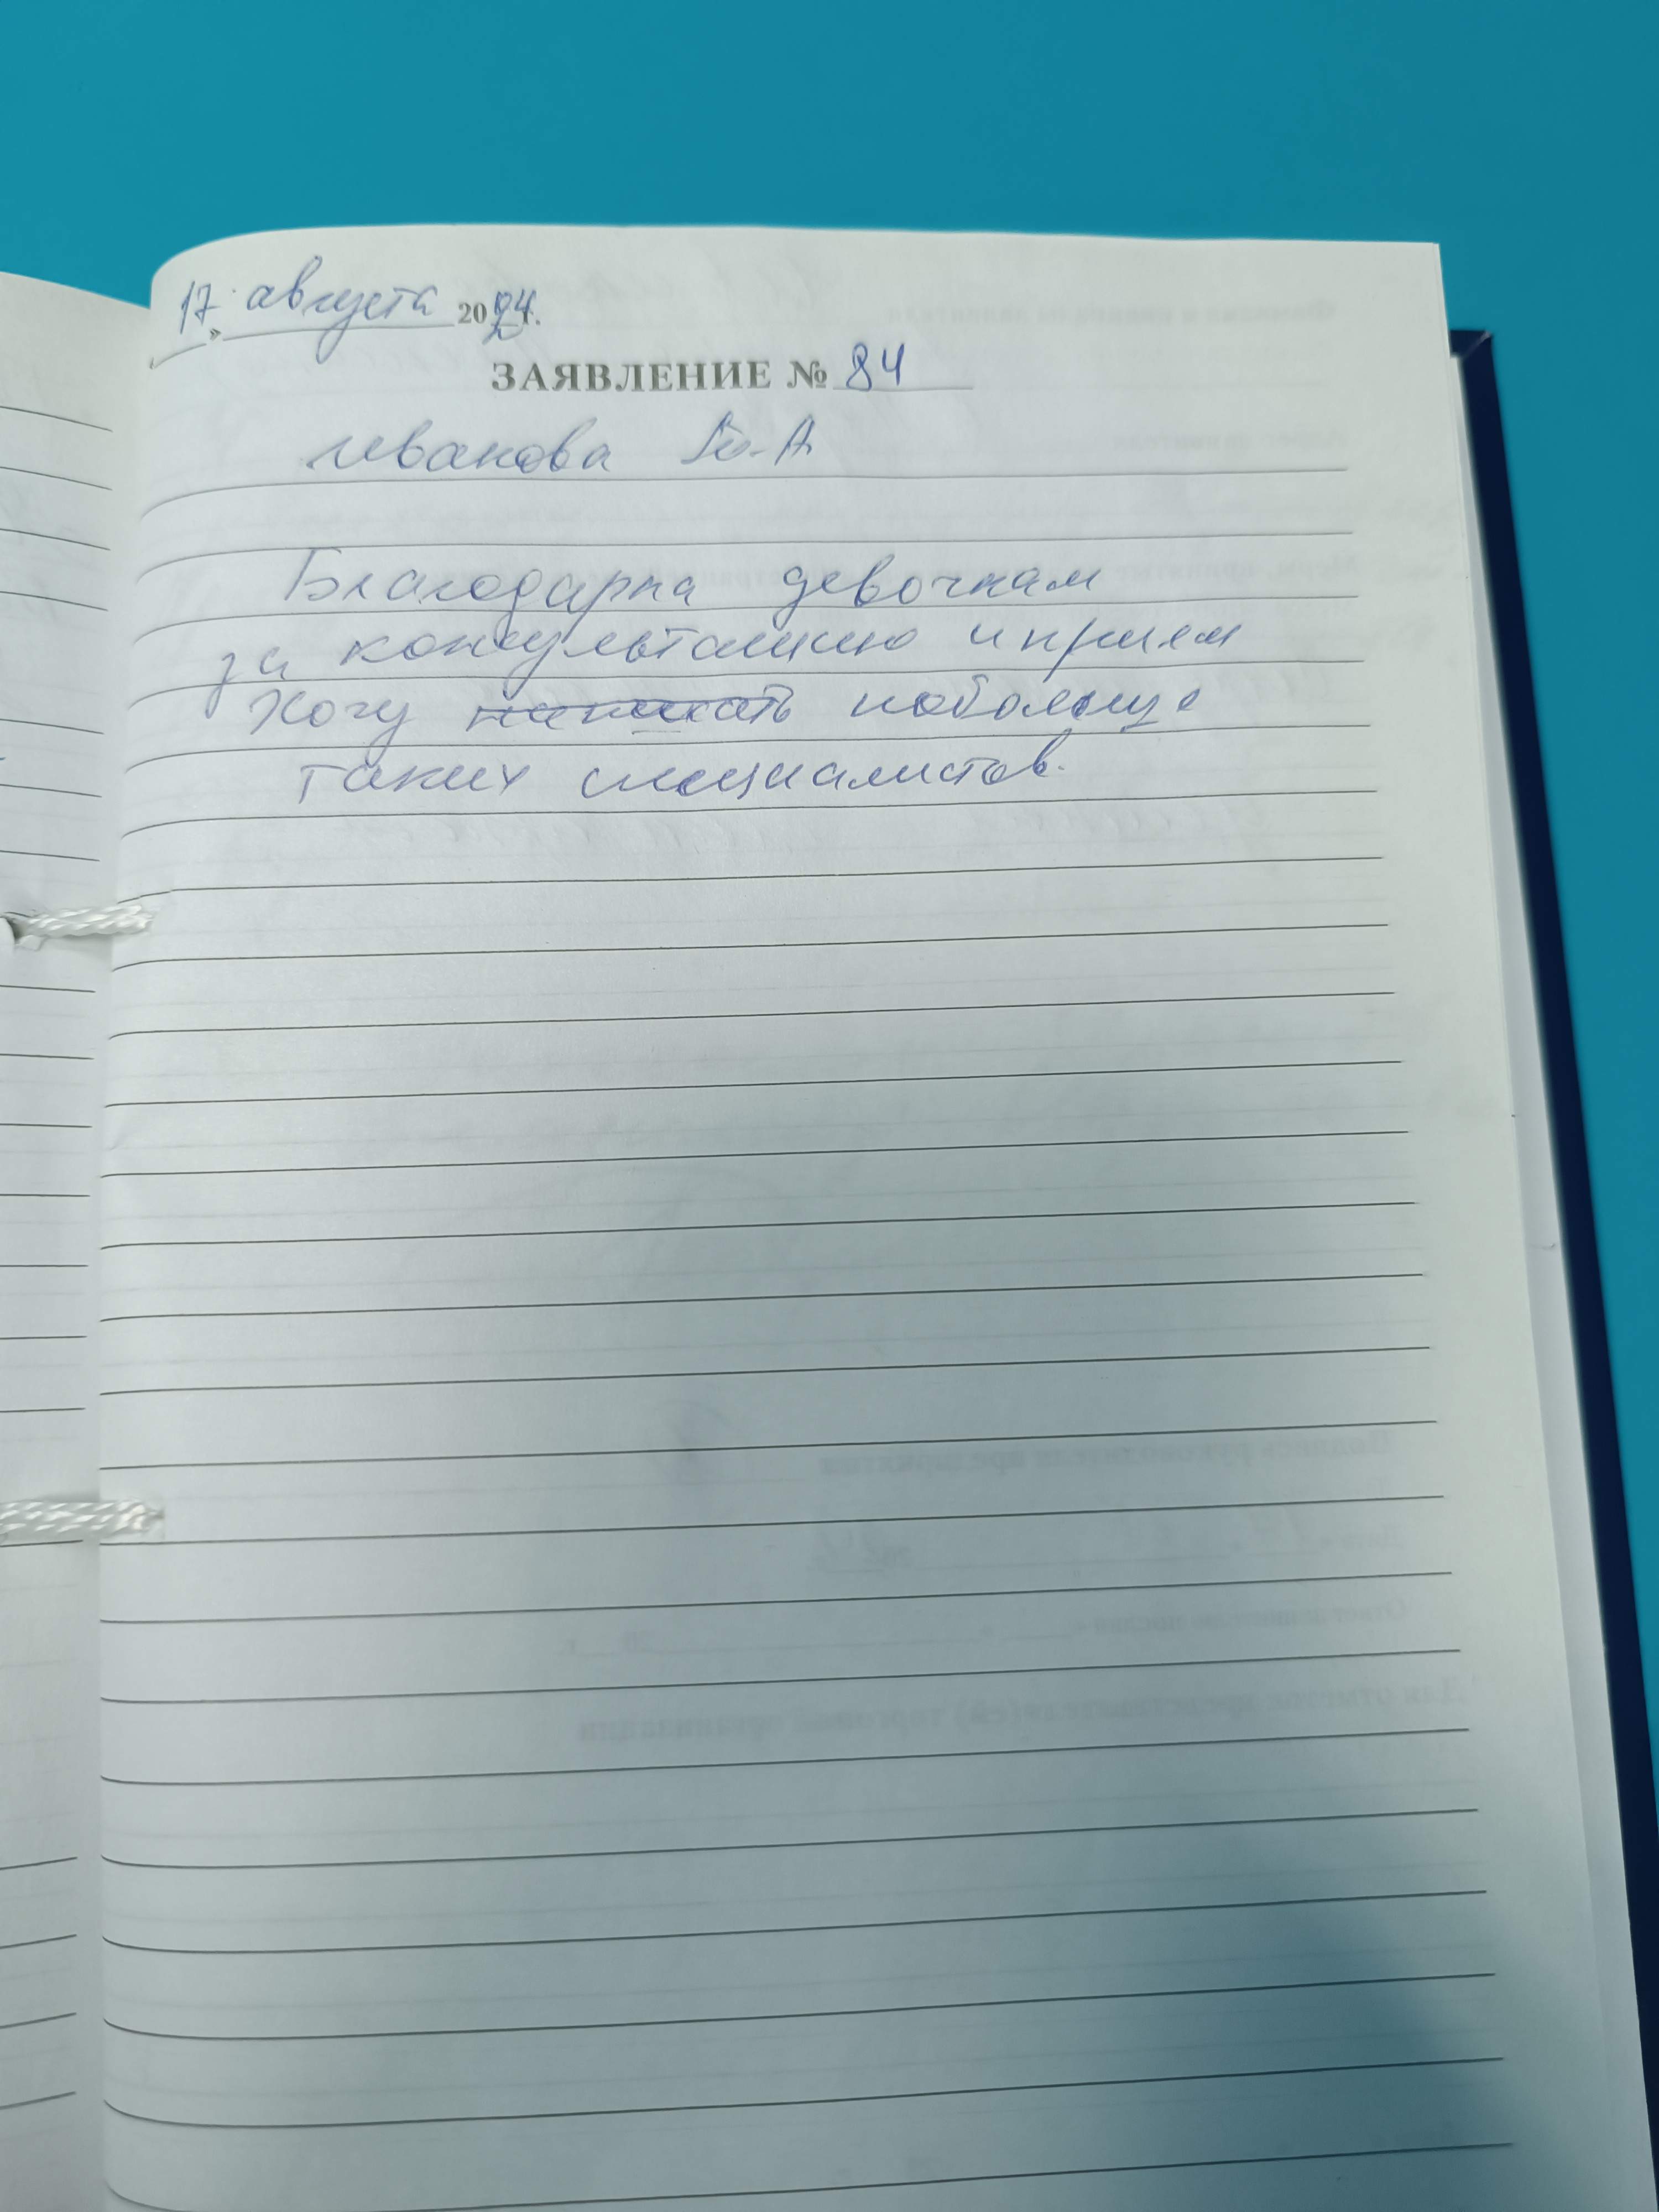 17 » августа 2024г.
ЗАЯВЛЕНИЕ № 84
Иванова Ю.А
Благодарна девочкам
за консультацию и прием
Хочу побольше
таких специалистов.